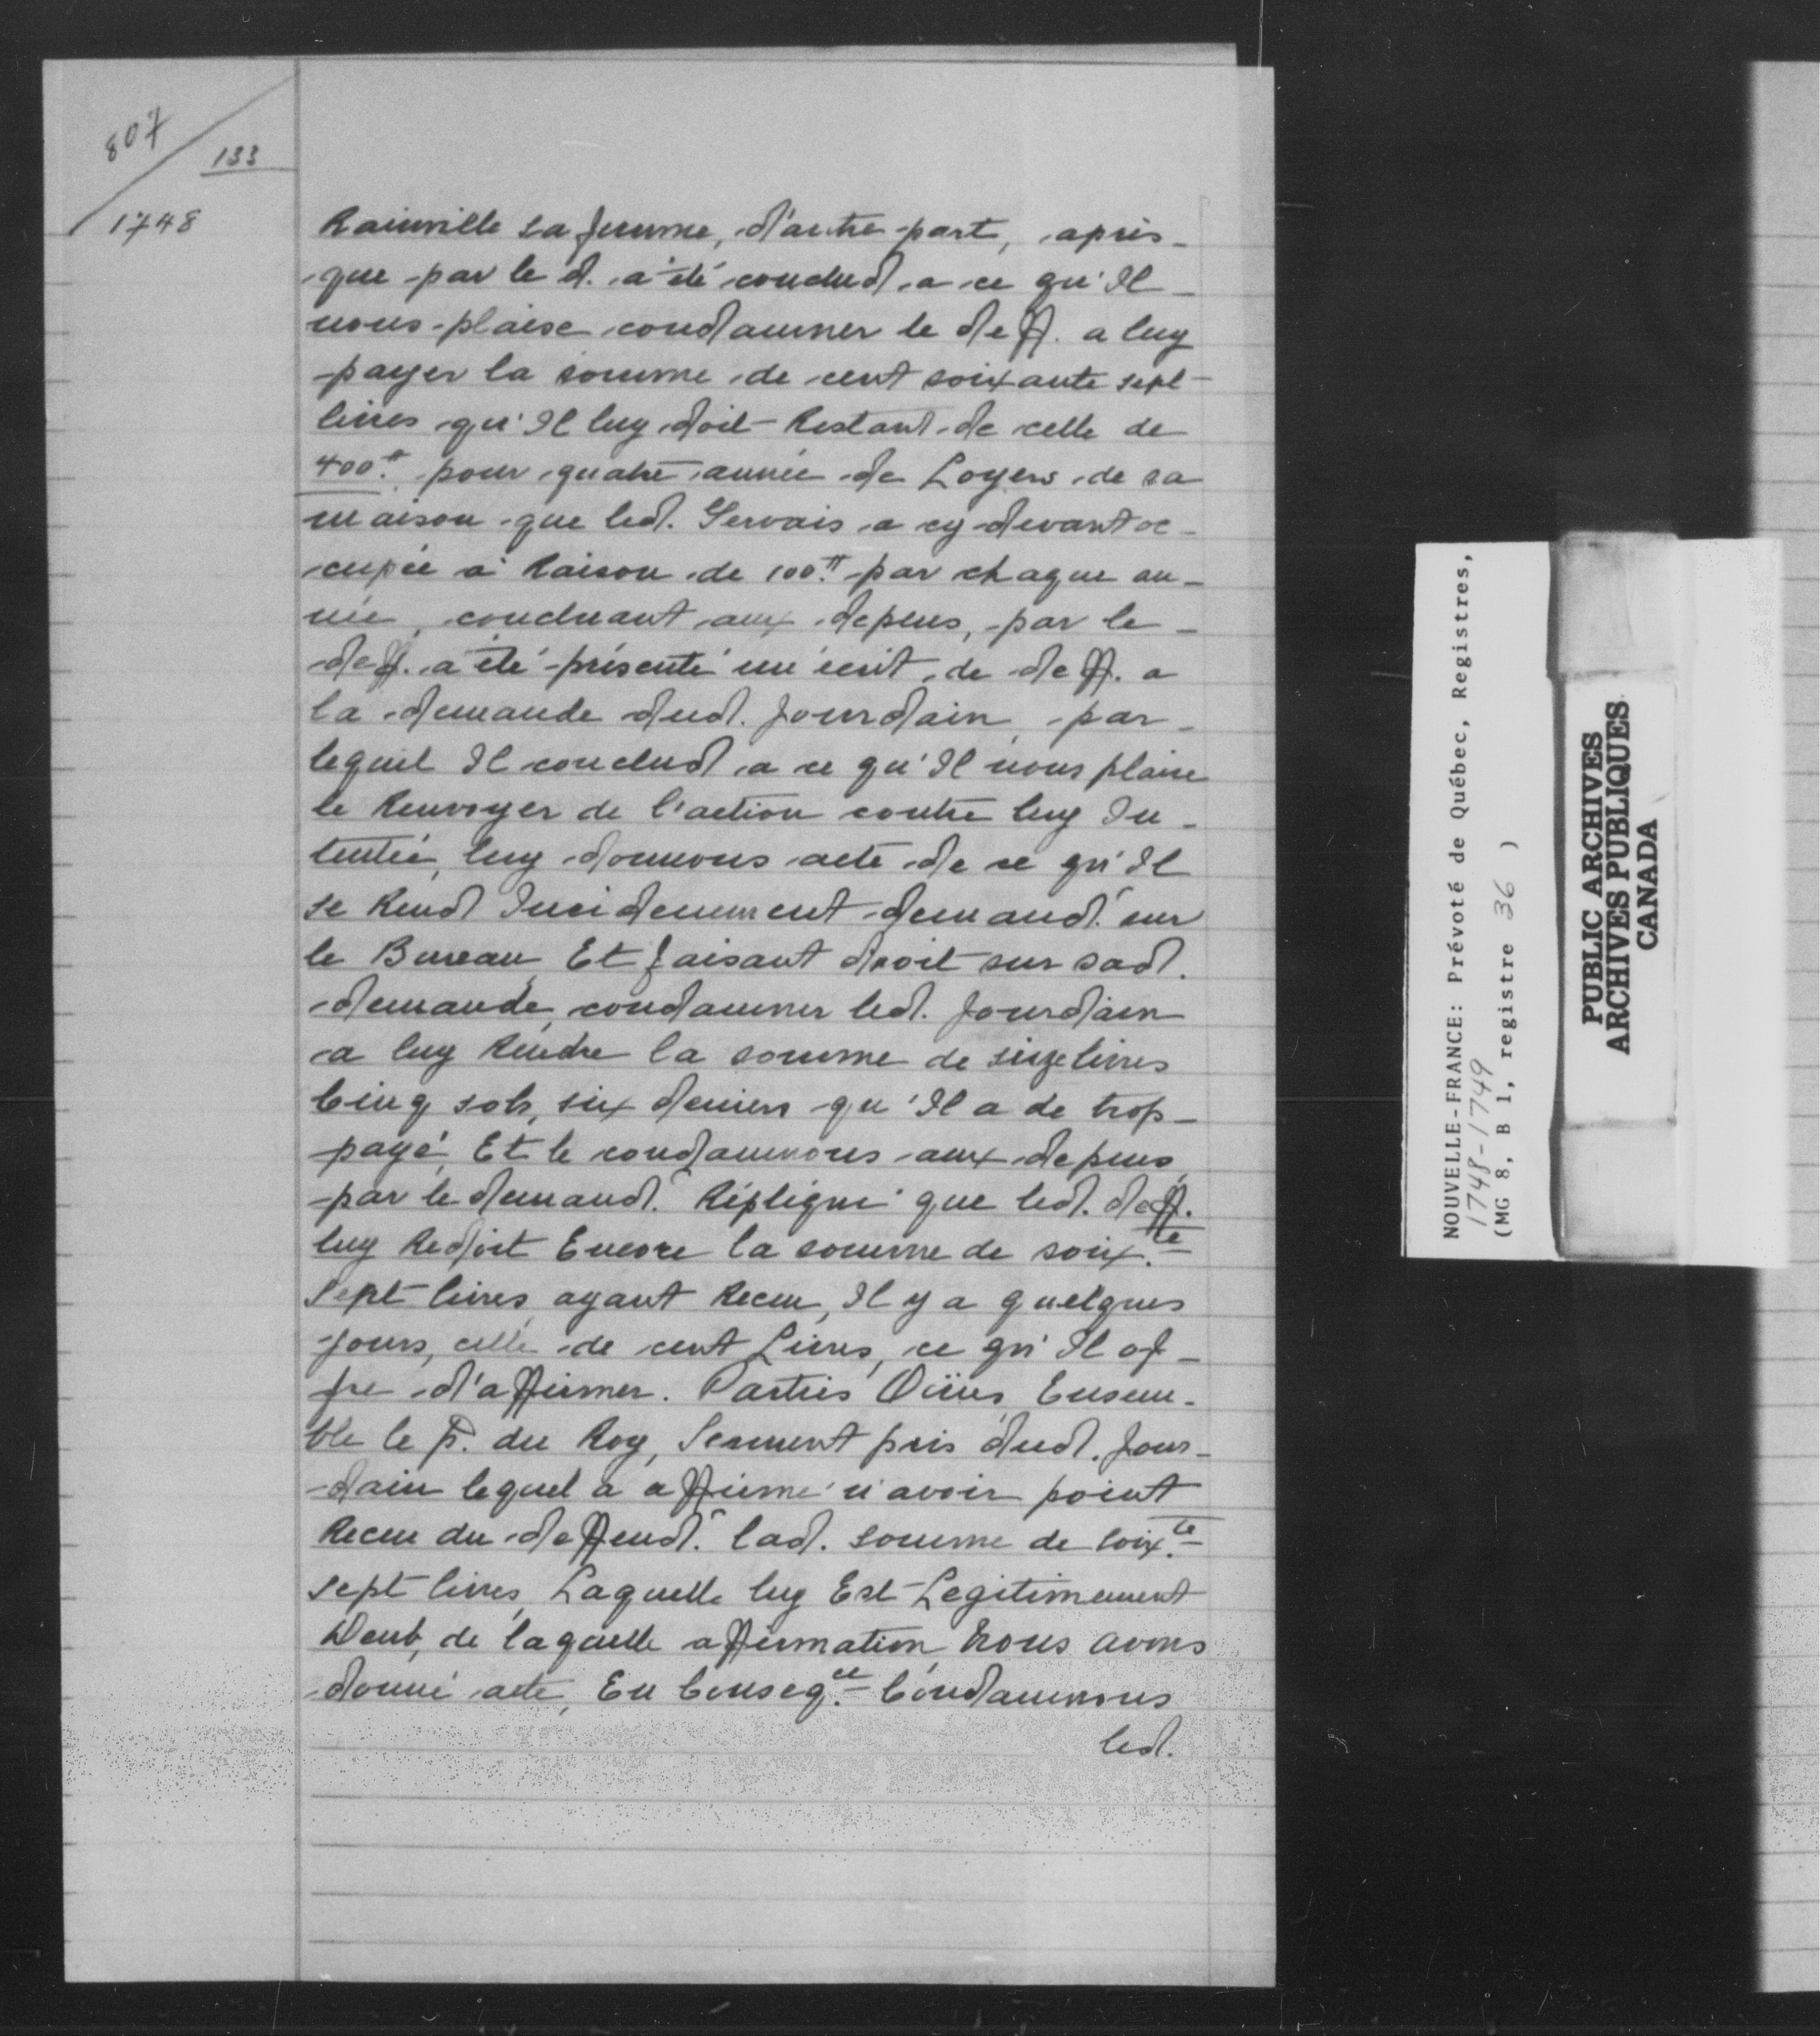 807
133
1748
Rainville sa femme, d'autre part, après-
que par le d. a été conclud a ce qu'Il
nous plaise condamner le deff. a luy
payer la somme de cent soixante sept
livres qu'Il luy doit Restant de celle de
400tt. pour quatre année de Loyers de sa
maison que led. Gervais a cy devant oc-
cupée à Raison de 100tt. par chaque an-
née, concluant aux depens, par le
deff. a été présenté un écrit de deff. a
la demande dud. Jourdain, par
lequel Il conclud a ce qu'Il nous plaise
le Renvoyer de l'action contre luy In-
tentée, luy donnons acte de ce qu'Il
se Rend Incidemment demand.r sur
le Bureau, Et faisant droit sur sad.
demande, condamner led. Jourdain
a luy Rendre la somme de seize livres
Cinq sols, six deniers qu'Il a de trop
payé, Et le condamnons aux depens,
par le demand.r Répliqué que led. deff.
luy Redoit Encore la somme de soix.te
Sept livres, ayant Receu, Il y a quelques
jours, celle de cent Livres, ce qu'Il of-
fre d'affirmer. Parties Oüies, Ensem-
ble le P. du Roy, Serment pris dud. Jour-
dain lequel a affirmé n'avoir point
Receu du deffend.r lad. somme de soix.te
sept livres, Laquelle luy Est Legitimement
Deub, de laquelle affirmation, Nous avons
donné acte, En Conseq.ce Condamnons
led.
NOUVELLE-FRANCE: Prévoté de Québec, Registres,
1748-1749
(MG 8, B 1, registre 36 )
PUBLIC ARCHIVES
ARCHIVES PUBLIQUES
CANADA